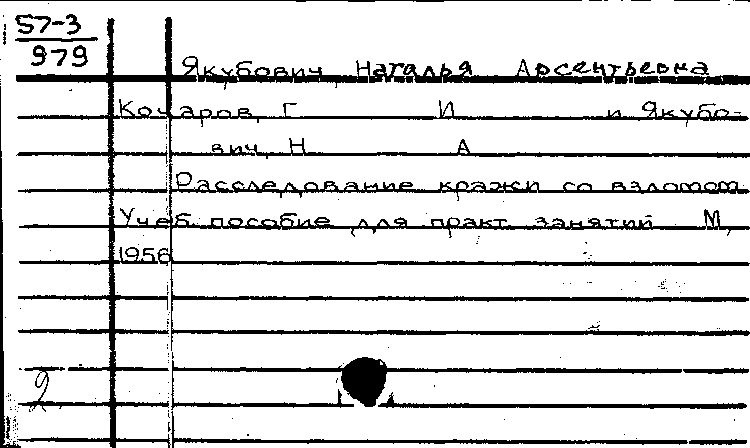 57-3
979
Якубович, Наталья Арсентьевна
Кочаров, Г И и Якубо-
вич, Н А
Расследование кражи со взломом
Учеб. пособие для практ. занятий М,
1956
2